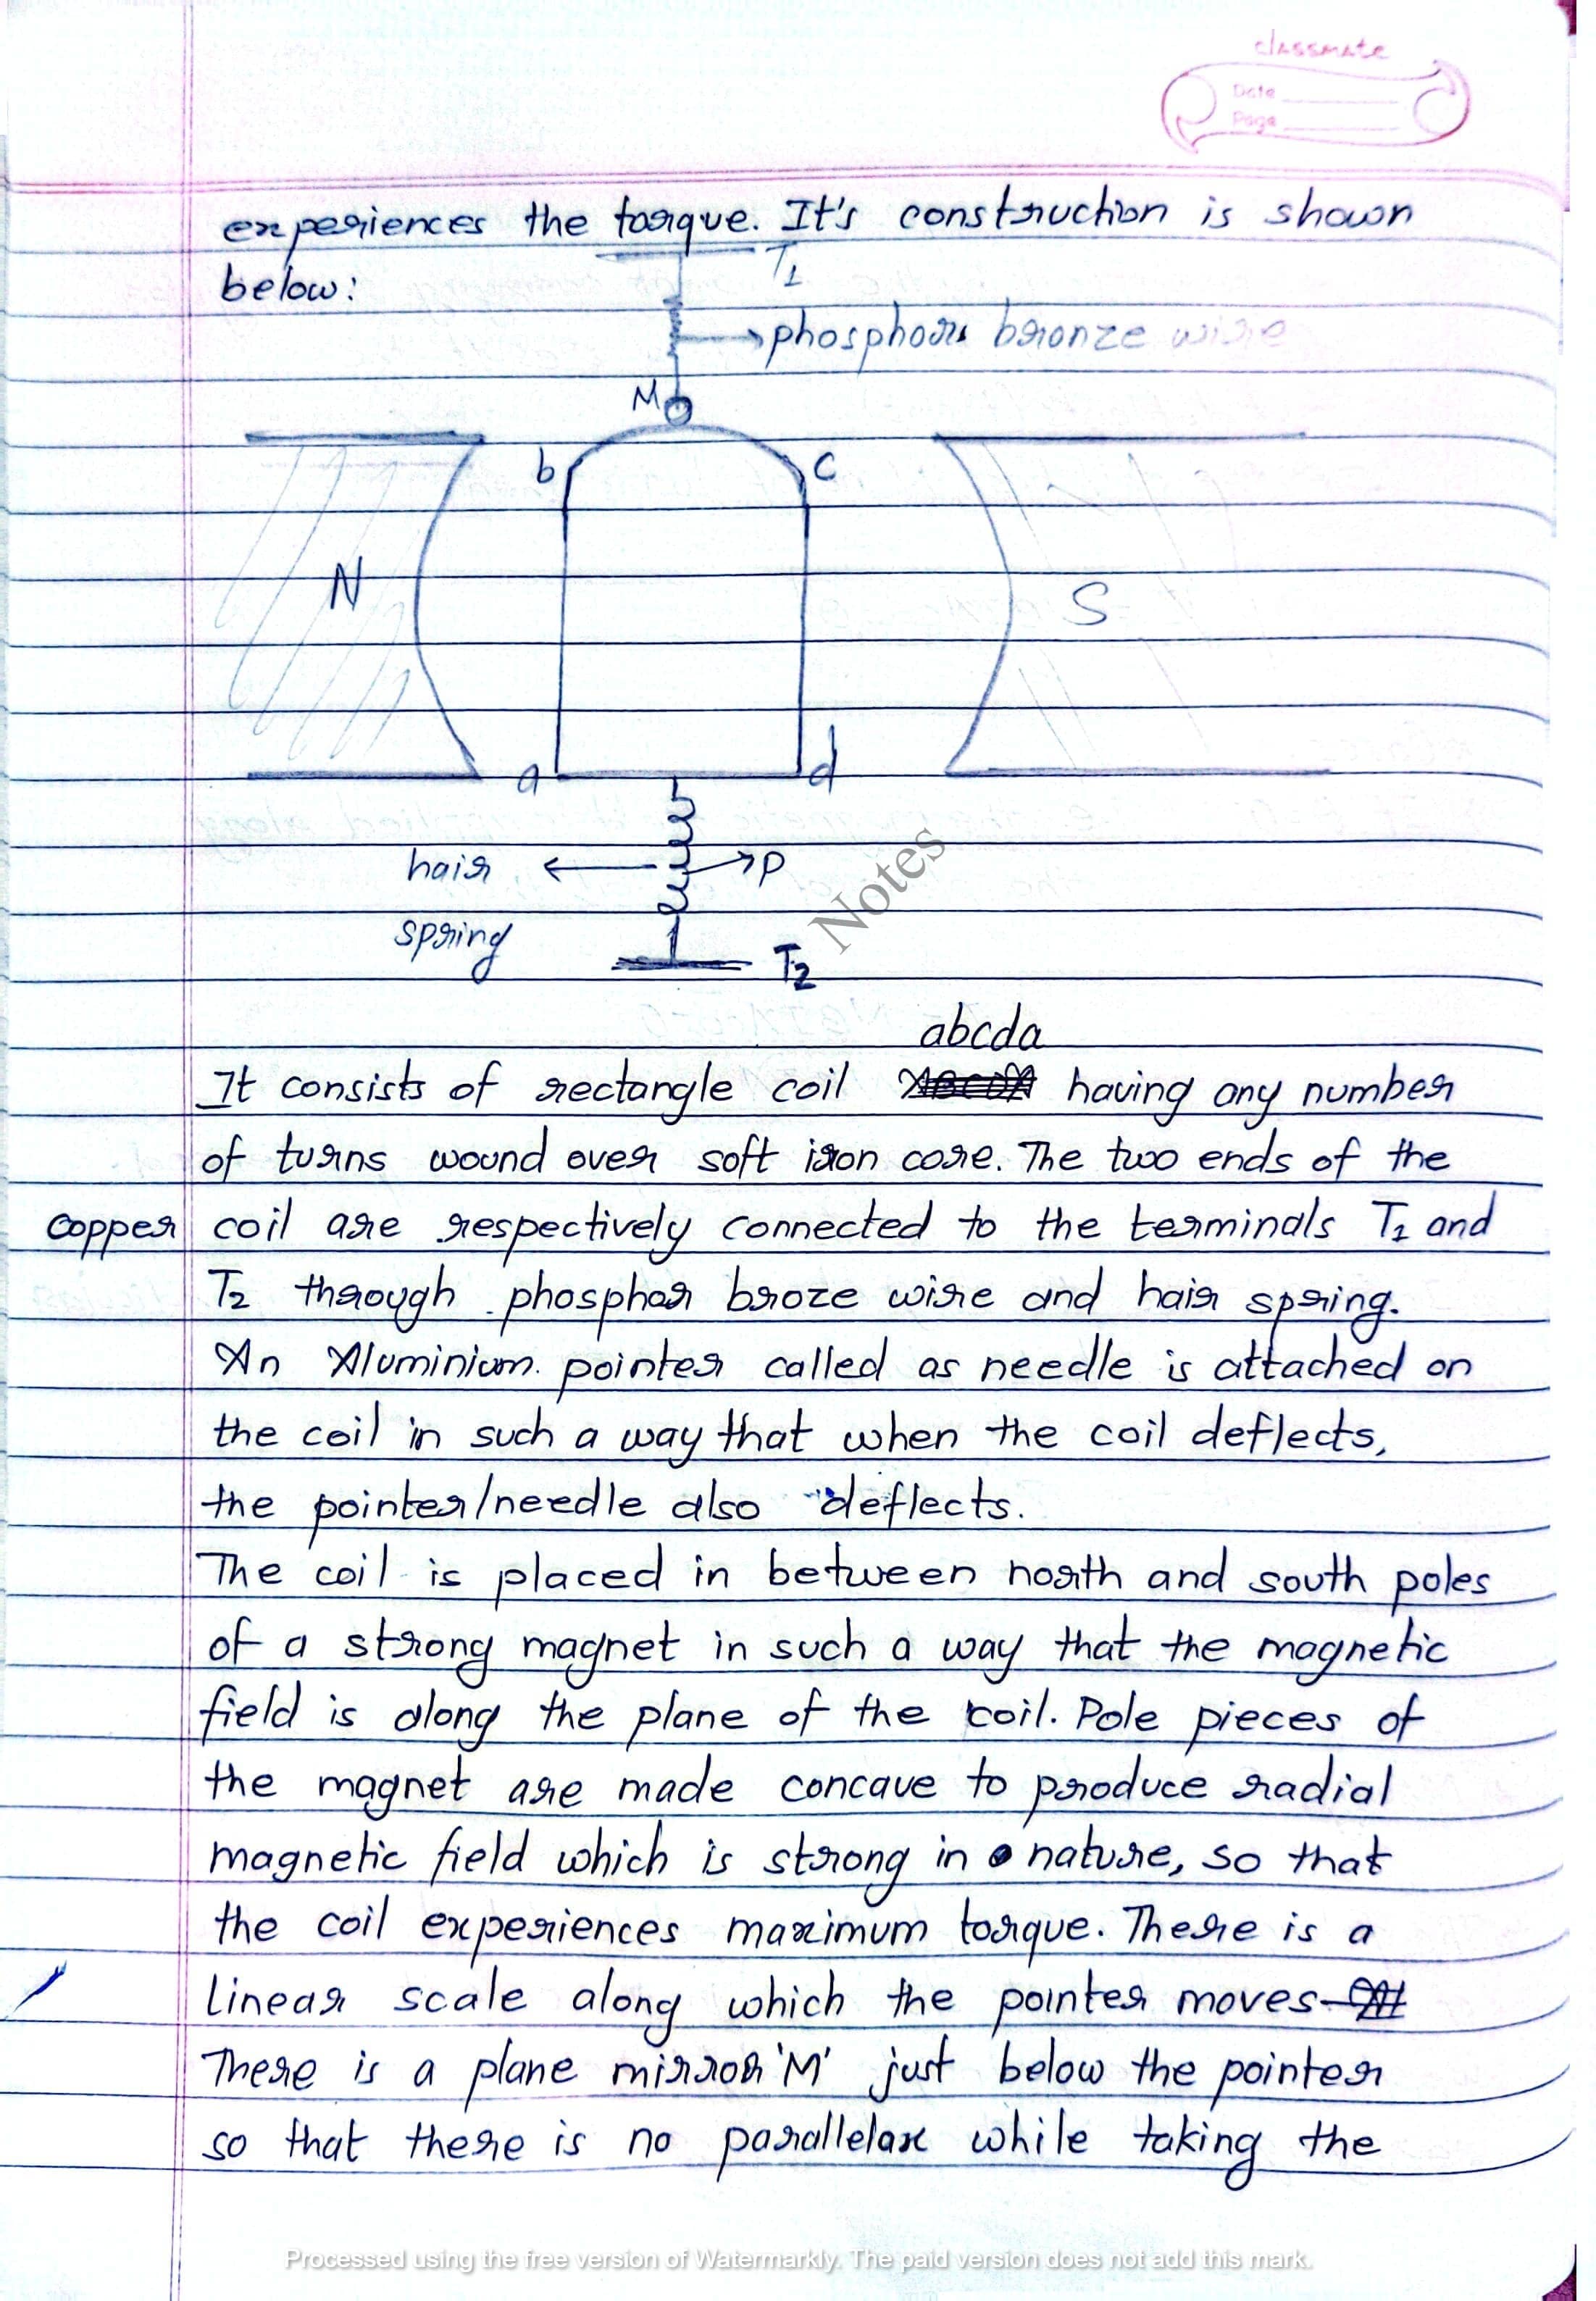 classmate
Date
Page
experiences the torque. It's construction is shown
below:
T1
phosphors bronze wire
M
b
c
N
S
a
d
hair
P
spring
T2
Notes
abcda
It consists of rectangle coil having any number
of turns wound over soft iron core. The two ends of the
copper coil are respectively connected to the terminals T1 and
T2 through phosphor broze wire and hair spring.
An Aluminium pointer called as needle is attached on
the coil in such a way that when the coil deflects,
the pointer/needle also deflects.
The coil is placed in between north and south poles
of a strong magnet in such a way that the magnetic
field is along the plane of the coil. Pole pieces of
the magnet are made concave to produce radial
magnetic field which is strong in nature, so that
the coil experiences maximum torque. There is a
linear scale along which the pointer moves
There is a plane mirror 'M' just below the pointer
so that there is no parallelax while taking the
Processed using the free version of Watermarkly. The paid version does not add this mark.